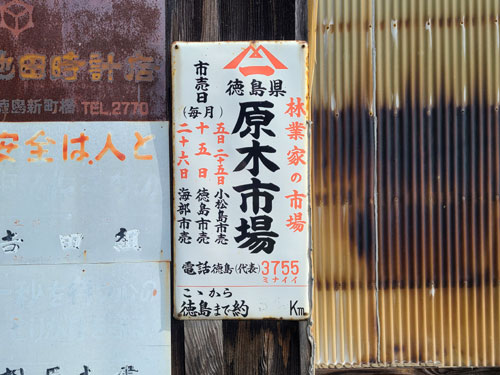 徳島県
林業家の市場
原木市場
市売日
(毎月)
五日二十五日 小松島市売
十五日 徳島市売
二十六日 海部市売
電話徳島(代表)3755
ミナイイ
こゝから
徳島まで約 Km
池田時計店
徳島新町橋 TEL.2770
安全は人と